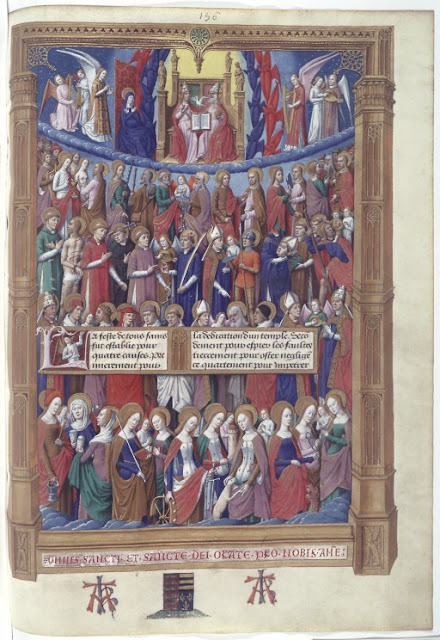 La feste de tous sains
fut establie pour
quatre causes. Pre
mierement pour
la dedication dun temple. Seco
dement pour les faultes
tiercement pour oster neglige
ce quartement pour impetrer
SANCTI·ET·SANCTE·DEI·ORATE·PRO·NOBIS·AME: